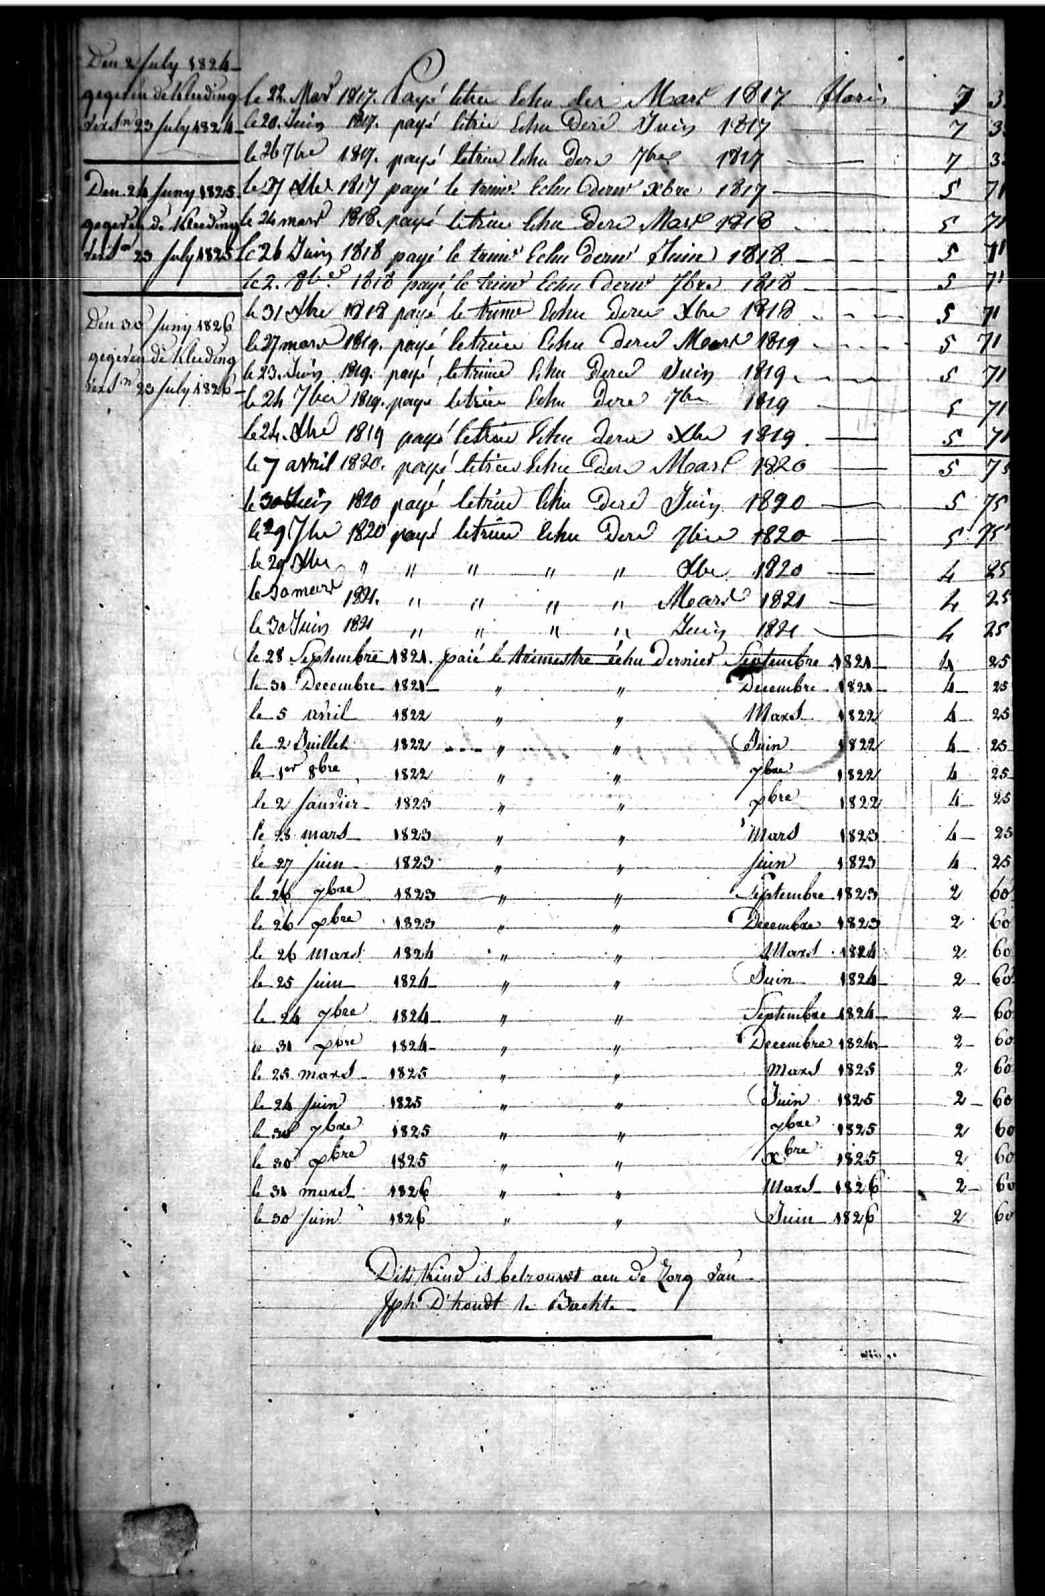 Den 2 July 1824
gegeven de kleeding
23 July 1824
Den 24 Juny 1825
gegeven de kleeding
23 July 1825
Den 30 Juny 1826
gegeven de kleeding
23 July 1826
le 22 Mars 1817. Payé letrie Echu der Mars 1817 florin 7 3
le 20 Juin 1817. payé letrie Echu Derè Juin 1817 7 3
le 26 7bre 1817. payé letrim Echu Dere 7bre 1817 7 3
le 27 Xbre 1817 payé le trimr Echu dernr xbre 1817 5 71
le 24 mars 1818. payé letrim Echu Dere Mars 1818 5 71
le 26 Juin 1818 payé le trimr Echu dernr Juin 1818 5 71
le 2. 8bre 1818 payé le trimr Echu dernr 7bre 1818 5 71
le 31 Xbre 1818 payé le trimr Echu dere Xbre 1818 5 71
le 27 mars 1819. payé letrim Echu dere Mars 1819 5 71
le 23. Juin 1819. payé letrime Echu Dere Juin 1819 5 71
le 24 7bre 1819. payé letrie Echu dere 7bre 1819 5 71
le 24. Xbre 1819 payé letrim Echu dere Xbre 1819. 5 71
le 7 avril 1820. payé letrim Echu dere Mars 1820 5 75
le 30 Juin 1820 payé letrim Echu Dere Juin 1820 5 75
le 29 7bre 1820 payé letrim Echu Dere 7bre 1820 5 75
le 29 Xbre " " " " " Xbre 1820 4 25
le 30 mars 1821. " " " " Mars 1821 4 25
le 30 Juin 1821 " " " " Juin 1821 4 25
le 28 Septembre 1821. paié le trimestre échu Dernier Septembre 1821 4 25
le 31 Decembre 1821 " " Decembre 1821 4 25
le 5 avril 1822 " " Mars 1822 4 25
le 2 Juillet 1822 " " Juin 1822 4 25
le 1er 8bre 1822 " " 7bre 1822 4 25
le 2 Janvier 1823 " " xbre 1822 4 25
le 28 mars 1823 " " Mars 1823 4 25
le 27 juin 1823 " " juin 1823 4 25
le 26 7bre 1823 " " Septembre 1823 2 60
le 26 xbre 1823 " " Decembre 1823 2 60
le 26 mars 1824 " " Mars 1824 2 60
le 25 juin 1824 " " Juin 1824 2 60
le 24 7bre 1824 " " Septembre 1824 2 60
le 31 xbre 1824 " " Decembre 1824 2 60
le 25 mars 1825 " " Mars 1825 2 60
le 24 juin 1825 " " Juin 1825 2 60
le 30 7bre 1825 " " 7bre 1825 2 60
le 30 xbre 1825 " " xbre 1825 2 60
le 31 mars 1826 " " Mars 1826 2 60
le 30 juin 1826 " " Juin 1826 2 60
Dits Kind is betrouwt aen de Zorg van
Jph D'hondt te Bachte